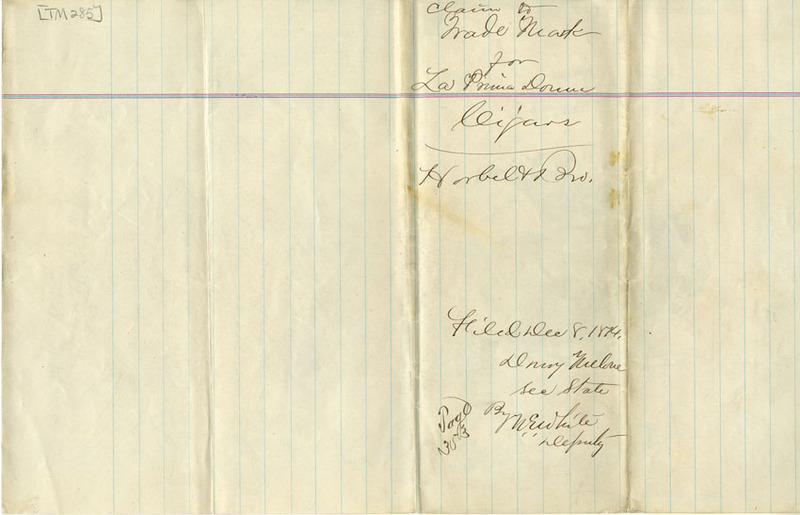 [TM 285]
Claim to
Trade Mark
for
La Prima Donna
Cigars
& Bro.
Filed Dec 8, 1874.
Drury Melone
Sec State
By
Deputy